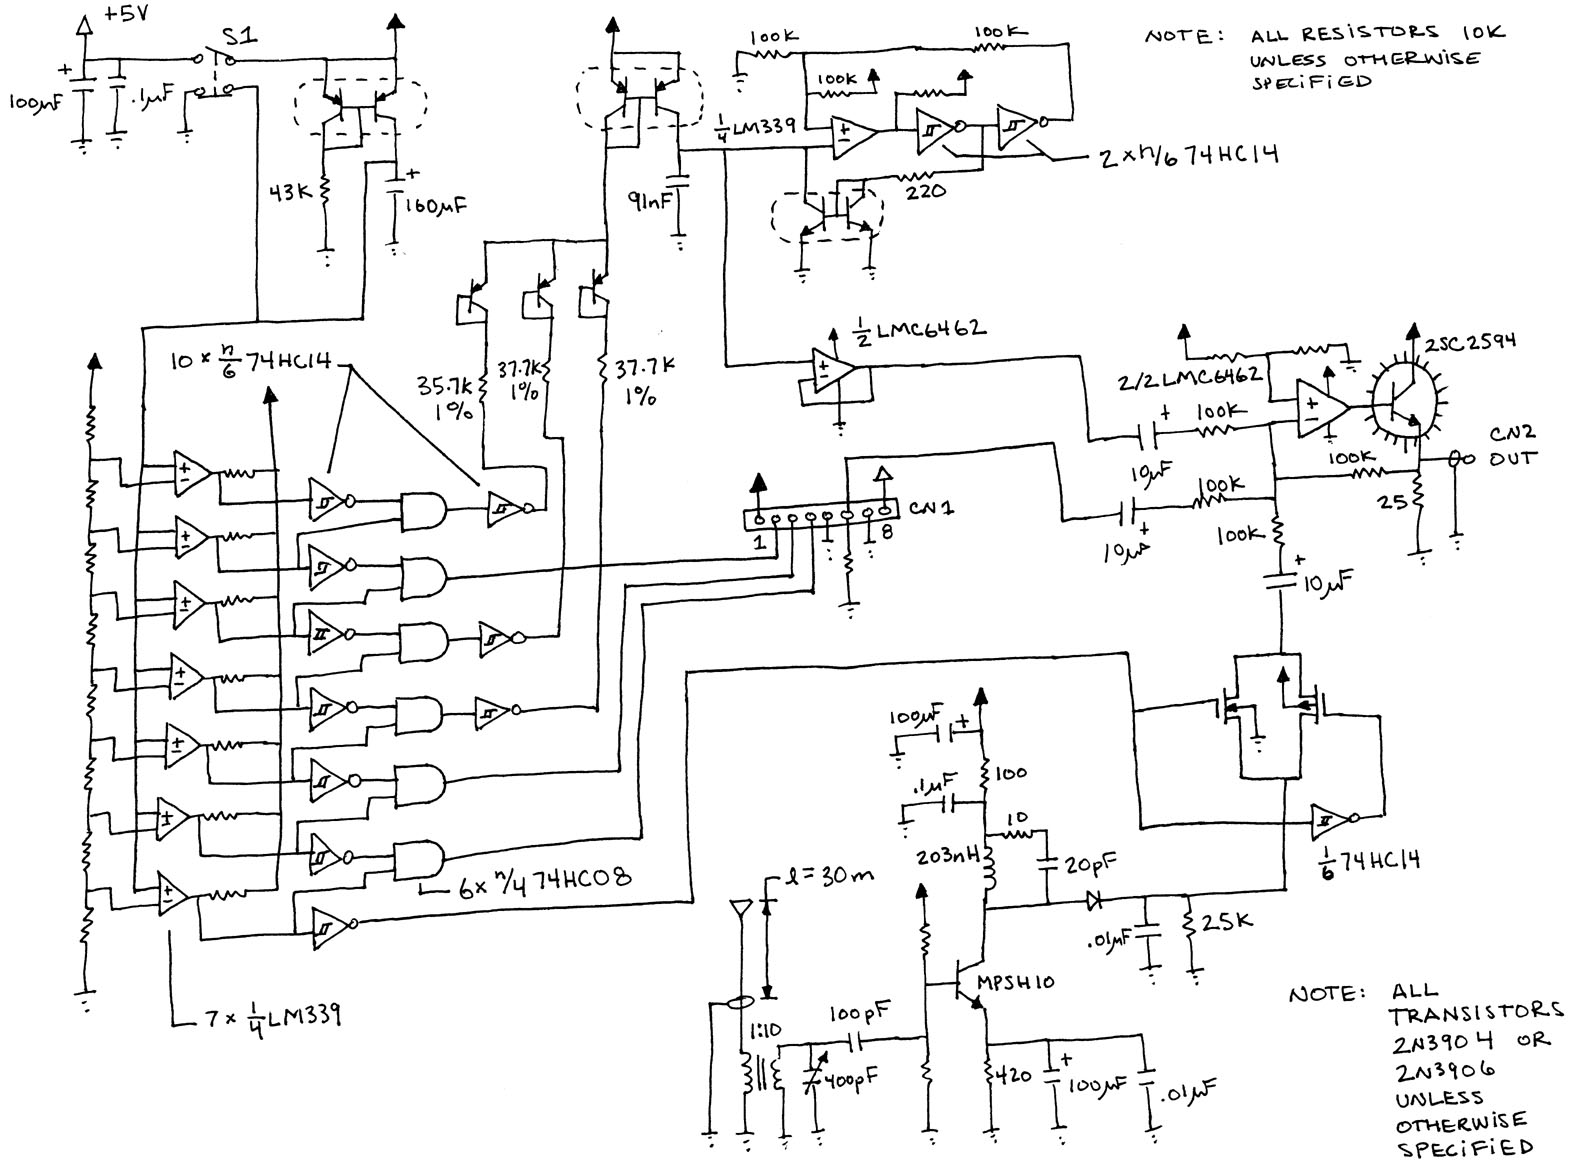 +5V
S1
+
100µF
.1µF
43K
+
160µF
91nF
100K
100K
100K
1/4 LM339
+
-
2 x n/6 74HC14
220
NOTE: ALL RESISTORS 10K
UNLESS OTHERWISE
SPECIFIED
10 x n/6 74HC14
35.7K
1%
37.7K
1%
37.7K
1%
1/2 LMC6462
+
-
2/2 LMC6462
2SC2594
+
-
+
100K
10µF
100K
CN2
OUT
25
100K
10µF
+
100K
+
10µF
CN1
1
8
+
-
+
-
+
-
+
-
+
-
+
-
+
-
6 x n/4 74HC08
7 x 1/4 LM339
100µF
+
100
.1µF
10
203nH
20pF
.01µF
25K
1/6 74HC14
l = 30m
MPSH10
1:10
100pF
400pF
420
+
100µF
.01µF
NOTE: ALL
TRANSISTORS
2N3904 OR
2N3906
UNLESS
OTHERWISE
SPECIFIED